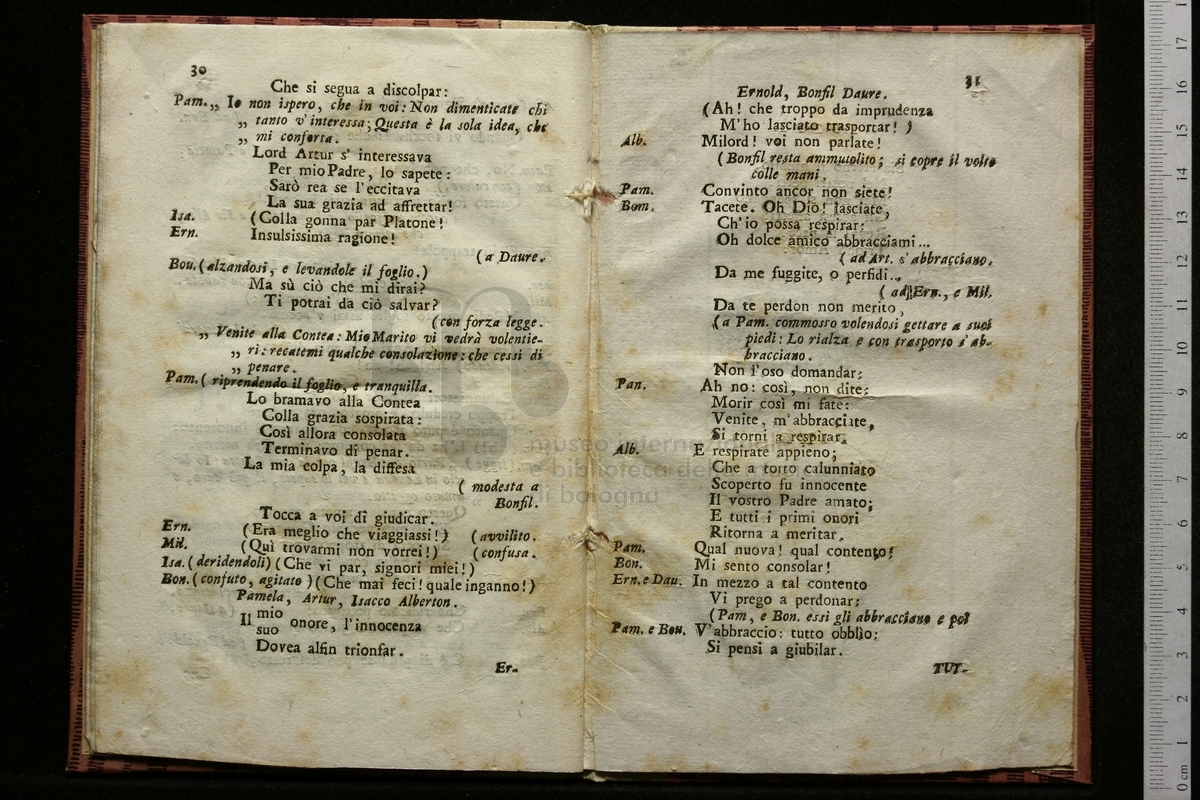 30
Che si segua a discolpar:
Pam. „ Io non ispero, che in voi: Non dimenticate chi
„ tanto v'interessa; Questa è la sola idea, che
„ mi conforta.
Lord Artur s' interessava
Per mio Padre, lo sapete:
Sarò rea se l'eccitava
La sua grazia ad affrettar!
Isa. (Colla gonna par Platone!
Ern. Insulsissima ragione!
(a Daure.
Bou. (alzandosi, e levandole il foglio.)
Ma sù ciò che mi dirai?
Ti potrai da ciò salvar?
(con forza legge.
„ Venite alla Contea: Mio Marito vi vedrà volentie-
„ ri: recatemi qualche consolazione: che cessi di
„ penare.
Pam. ( riprendendo il foglio, e tranquilla.
Lo bramavo alla Contea
Colla grazia sospirata:
Così allora consolata
Terminavo di penar.
La mia colpa, la diffesa
( modesta a
Bonfil.
Tocca a voi di giudicar.
Ern. (Era meglio che viaggiassi!) (avvilito.
Mil. (Quì trovarmi non vorrei!) (confusa.
Isa. (deridendoli) (Che vi par, signori miei!)
Bon. (confuto, agitato) (Che mai feci! quale inganno!)
Pamela, Artur, Isacco Alberton.
Il mio
suo onore, l'innocenza
Dovea alfin trionfar.
Er-
31
Ernold, Bonfil Daure.
(Ah! che troppo da imprudenza
M'ho lasciato trasportar! )
Alb. Milord! voi non parlate!
(Bonfil resta ammutolito; si copre il volto
colle mani.
Pam. Convinto ancor non siete!
Bom. Tacete. Oh Dio! lasciate,
Ch'io possa respirar:
Oh dolce amico abbracciami...
( ad Art. s'abbracciano.
Da me fuggite, o perfidi...
( ad Ern., e Mil.
Da te perdon non merito,
(a Pam. commosso volendosi gettare a suoi
piedi: Lo rialza e con trasporto s'ab-
bracciano.
Non l'oso domandar:
Pan. Ah no: così, non dite:
Morir così mi fate:
Venite, m'abbracciate,
Si torni a respirar.
Alb. E respirate appieno;
Che a torto calunniato
Scoperto fu innocente
Il vostro Padre amato;
E tutti i primi onori
Ritorna a meritar.
Pam. Qual nuova! qual contento!
Bon. Mi sento consolar!
Ern. e Dau. In mezzo a tal contento
Vi prego a perdonar:
(Pam, e Bon. essi gli abbracciano e poi
Pam. e Bou. V'abbraccio: tutto obblio:
Si pensi a giubilar.
TUT-
museo internazionale
e biblioteca della
di bologna
0 cm 1 2 3 4 5 6 7 8 9 10 11 12 13 14 15 16 17